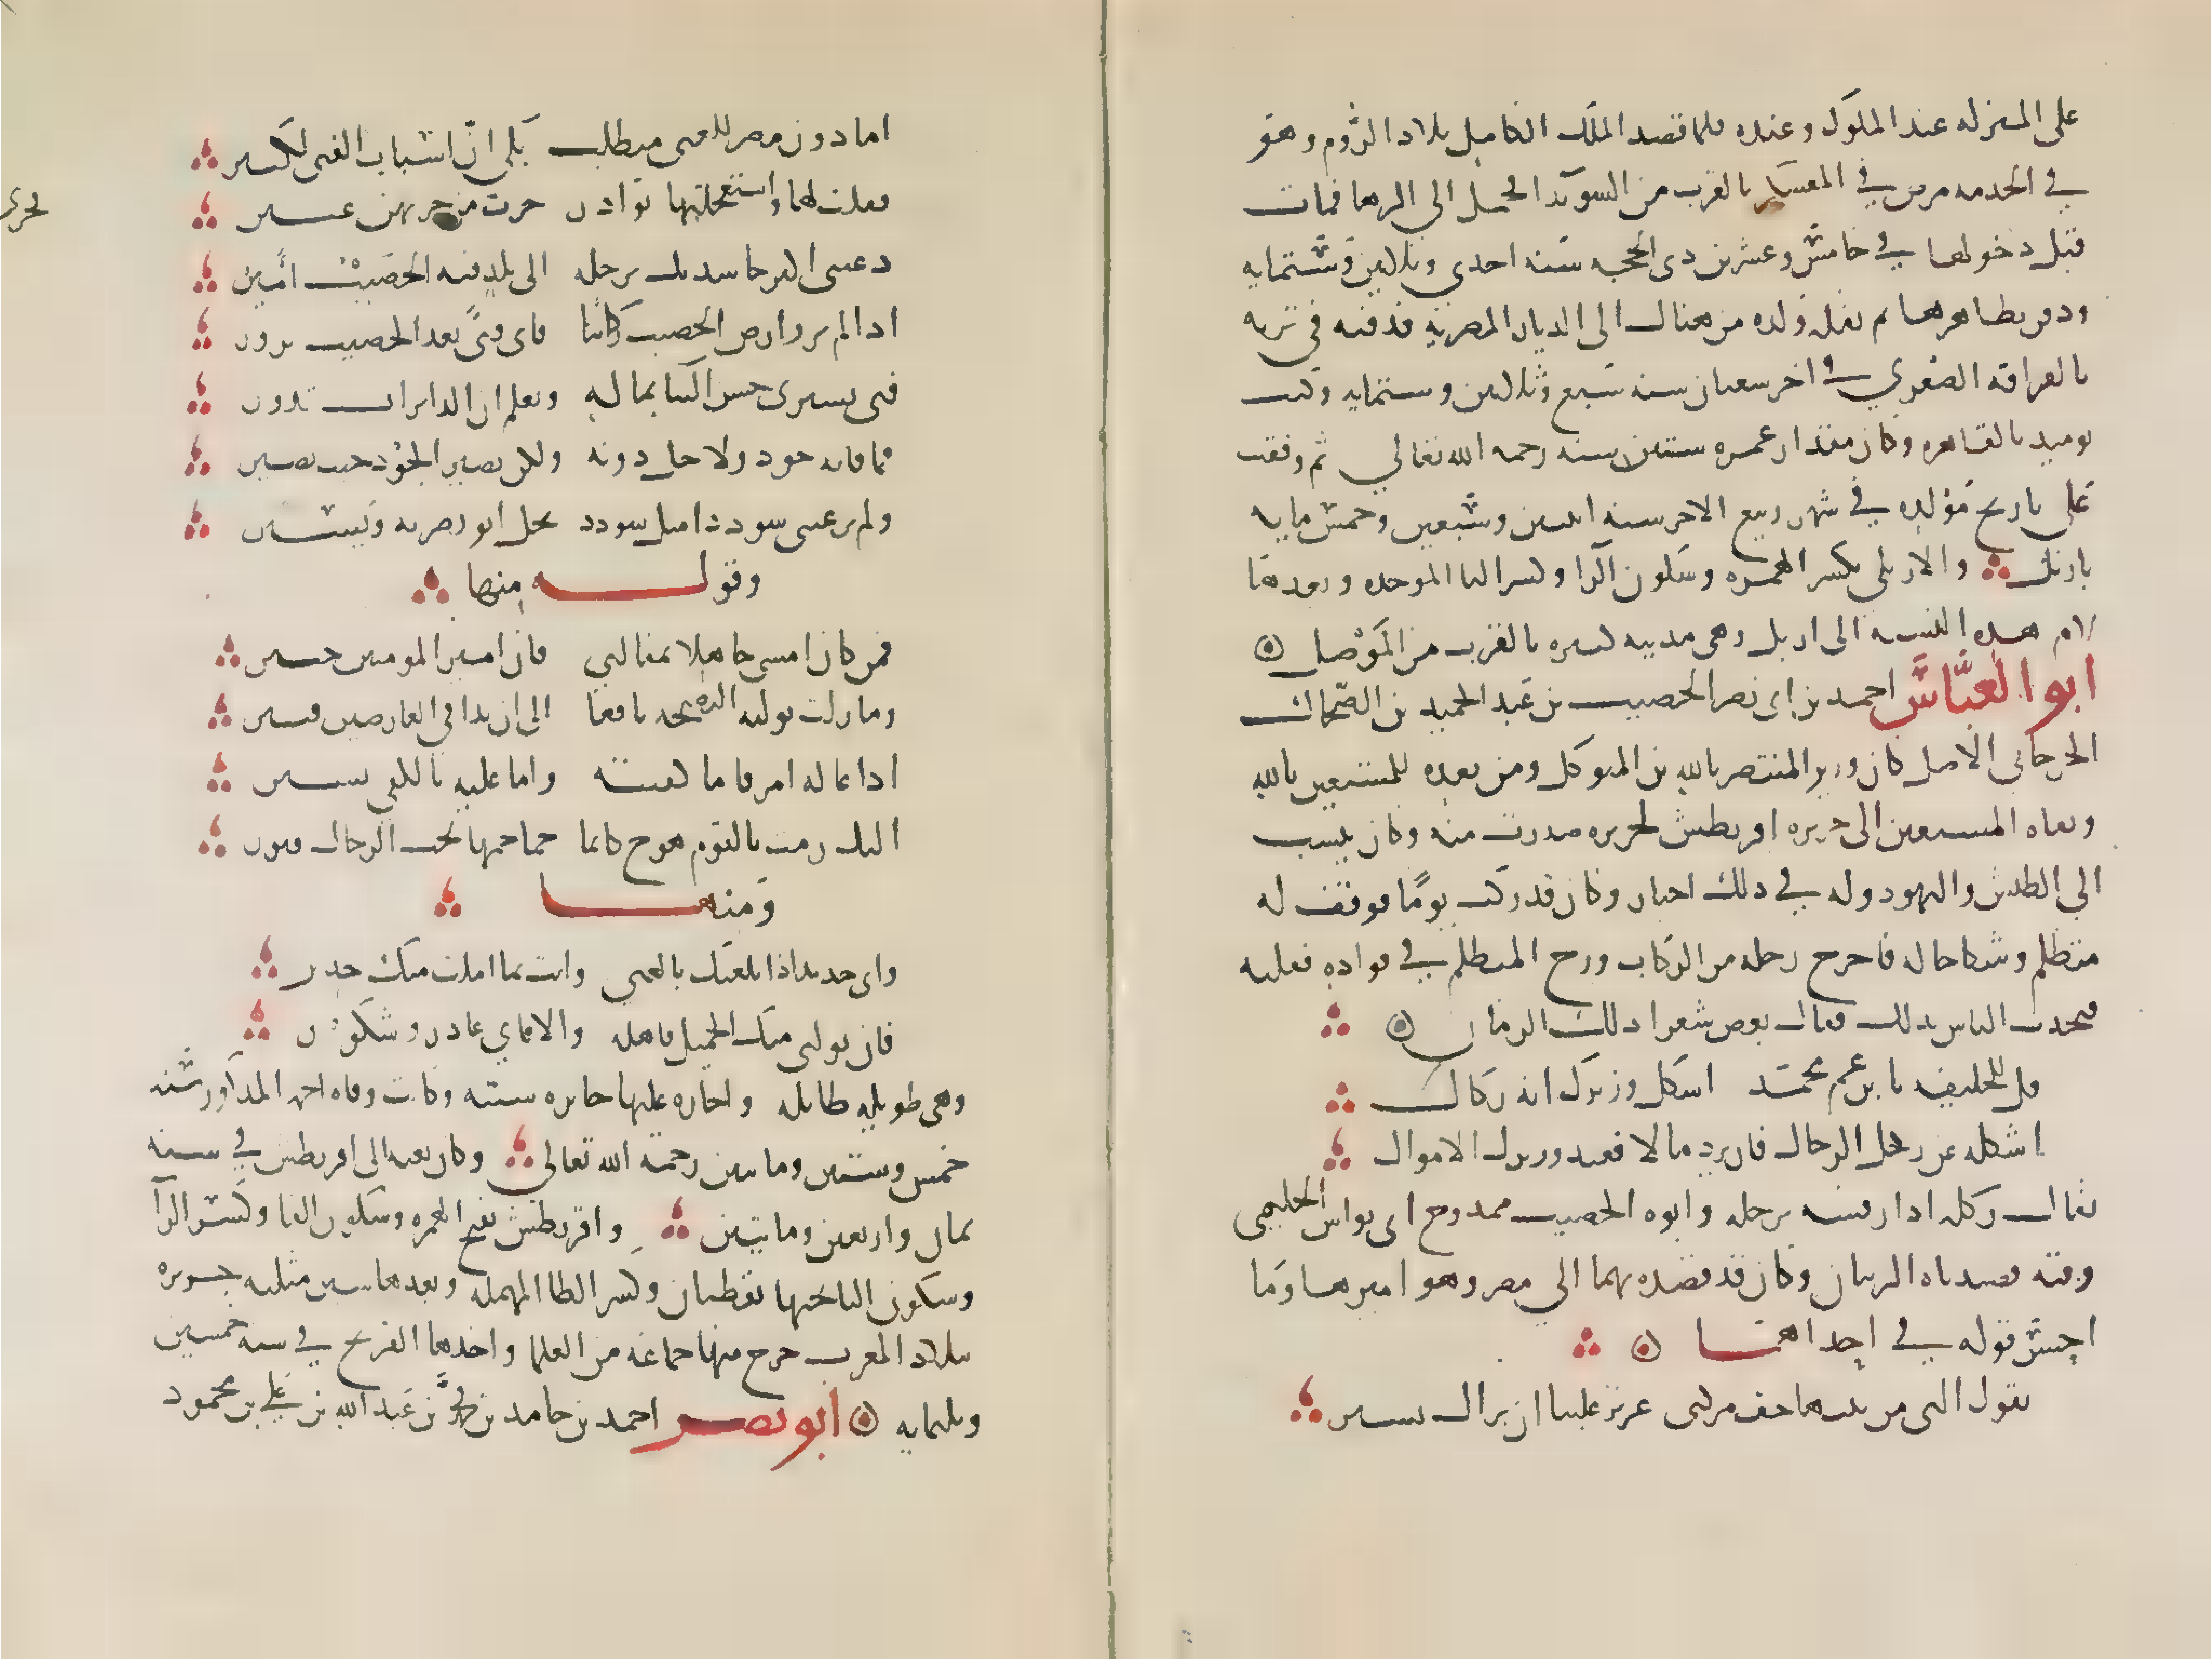 على المنزله عند الملوك وعنده فلما قصد الملك الكامل بلاد الروم وهو
في الخدمه مرض في المعسكر بالقرب من السويدا فحمل الى الرها فمات
قبل دخولها في خامس وعشرين ذي الحجه سنه احدي وثلاثين وستمايه
ودفن بظاهرها ثم نقله ولده من هناك الى الديار المصريه فدفنه في تربه
بالقرافه الصغري في اخر شعبان سنه سبع وثلاثين وستمايه وكنت
يوميذ بالقاهره وكان مقدار عمره ستين سنه رحمه الله تعالي ثم وقفت
على تاريخ مولده في شهر ربيع الاخر سنه اثنين وسبعين وخمس مايه
باربل والاربلي بكسر الهمزه وسكون الرا وكسر البا الموحده وبعدها
لام هذه النسبه الى اربل وهي مدينه كبيره بالقرب من الموصل
ابو العباس احمد بن ابي نصر الخصيب بن عبد الحميد بن الضحاك
الجرجاني الاصل كان وزير المنتصر بالله بن المتوكل ومن بعده للمستعين بالله
ونفاه المستعين الى جزيره اقريطش لجريره صدرت منه وكان ينسب
الي الطيش والتهور وله في ذلك اخبار وكان قد ركب يوما فوقف له
متظلم وشكا حاله فاخرج رجله من الركاب وزج المتظلم في فواده فقتله
فتحدث الناس بذلك فقال بعض شعرا ذلك الزمان
قل للخليفه يا بن عم محمد اشكل وزيرك انه ركال
اشكله عن ركل الرجال فان يرد مالا فعند وزيرك الاموال
يقال ركله اذا رفسه برجله وابوه الخصيب ممدوح ابي نواس الحكمي
وفيه قصيدتاه الرييتان وكان قد قصده بهما الي مصر وهو اميرها وما
احسن قوله في احداهما
تقول التي من بيتها خف مركبي عزيز علينا ان نراك تسير
اما دون مصر للغنى متطلب بلى ان اسباب الغنى لكثير
فقلت لها واستعجلتها بوادر جرت من جريهن عبير
دعيني اكثر حاسديك برحله الى بلد فيه الخصيب امير
اذا لم تزر ارض الخصيب ركابنا فاي فتى بعد الخصيب نزور
فتى يشتري حسن الثنا بماله ويعلم ان الدايرات تدور
فما فاته جود ولا حل دونه ولكن يصير الجود حيث يصير
ولم تر عيني سوددا مثل سودد يحل ابو نصر به ويسير
وقوله منها
فمن كان امسى جاهلا بمقالتي فان امير المومنين خبير
وما زلت توليه النصيحه يافعا الى ان بدا في العارضين قتير
اذا غاله امر فاما كفيته واما عليه بالكفي تشير
اليك رمت بالقوم هوج كانما جماجمها تحت الرحال قبور
ومنها
واني جدير اذ بلغتك بالغنى وانت بما املت منك جدير
فان تولني منك الجميل فاهله والا فاني عاذر وشكور
وهي طويله طايله واجازه عليها جايزه سنيه وكانت وفاه احمد المذكور سنه
خمس وستين وماتين رحمه الله تعالي وكان نفيه الى اقريطش في سنه
ثمان واربعين وماتين واقريطش بفتح الهمزه وسكون القاف وكسر الرا
وسكون اليا تحتها نقطتان وكسر الطا المهمله وبعدها شين مثلثه جزيره
ببلاد المغرب خرج منها جماعه من العلما واخذها الفرنج في سنه خمسين
وثلثمايه ابو نصر احمد بن حامد بن محمد بن عبد الله بن علي بن محمود